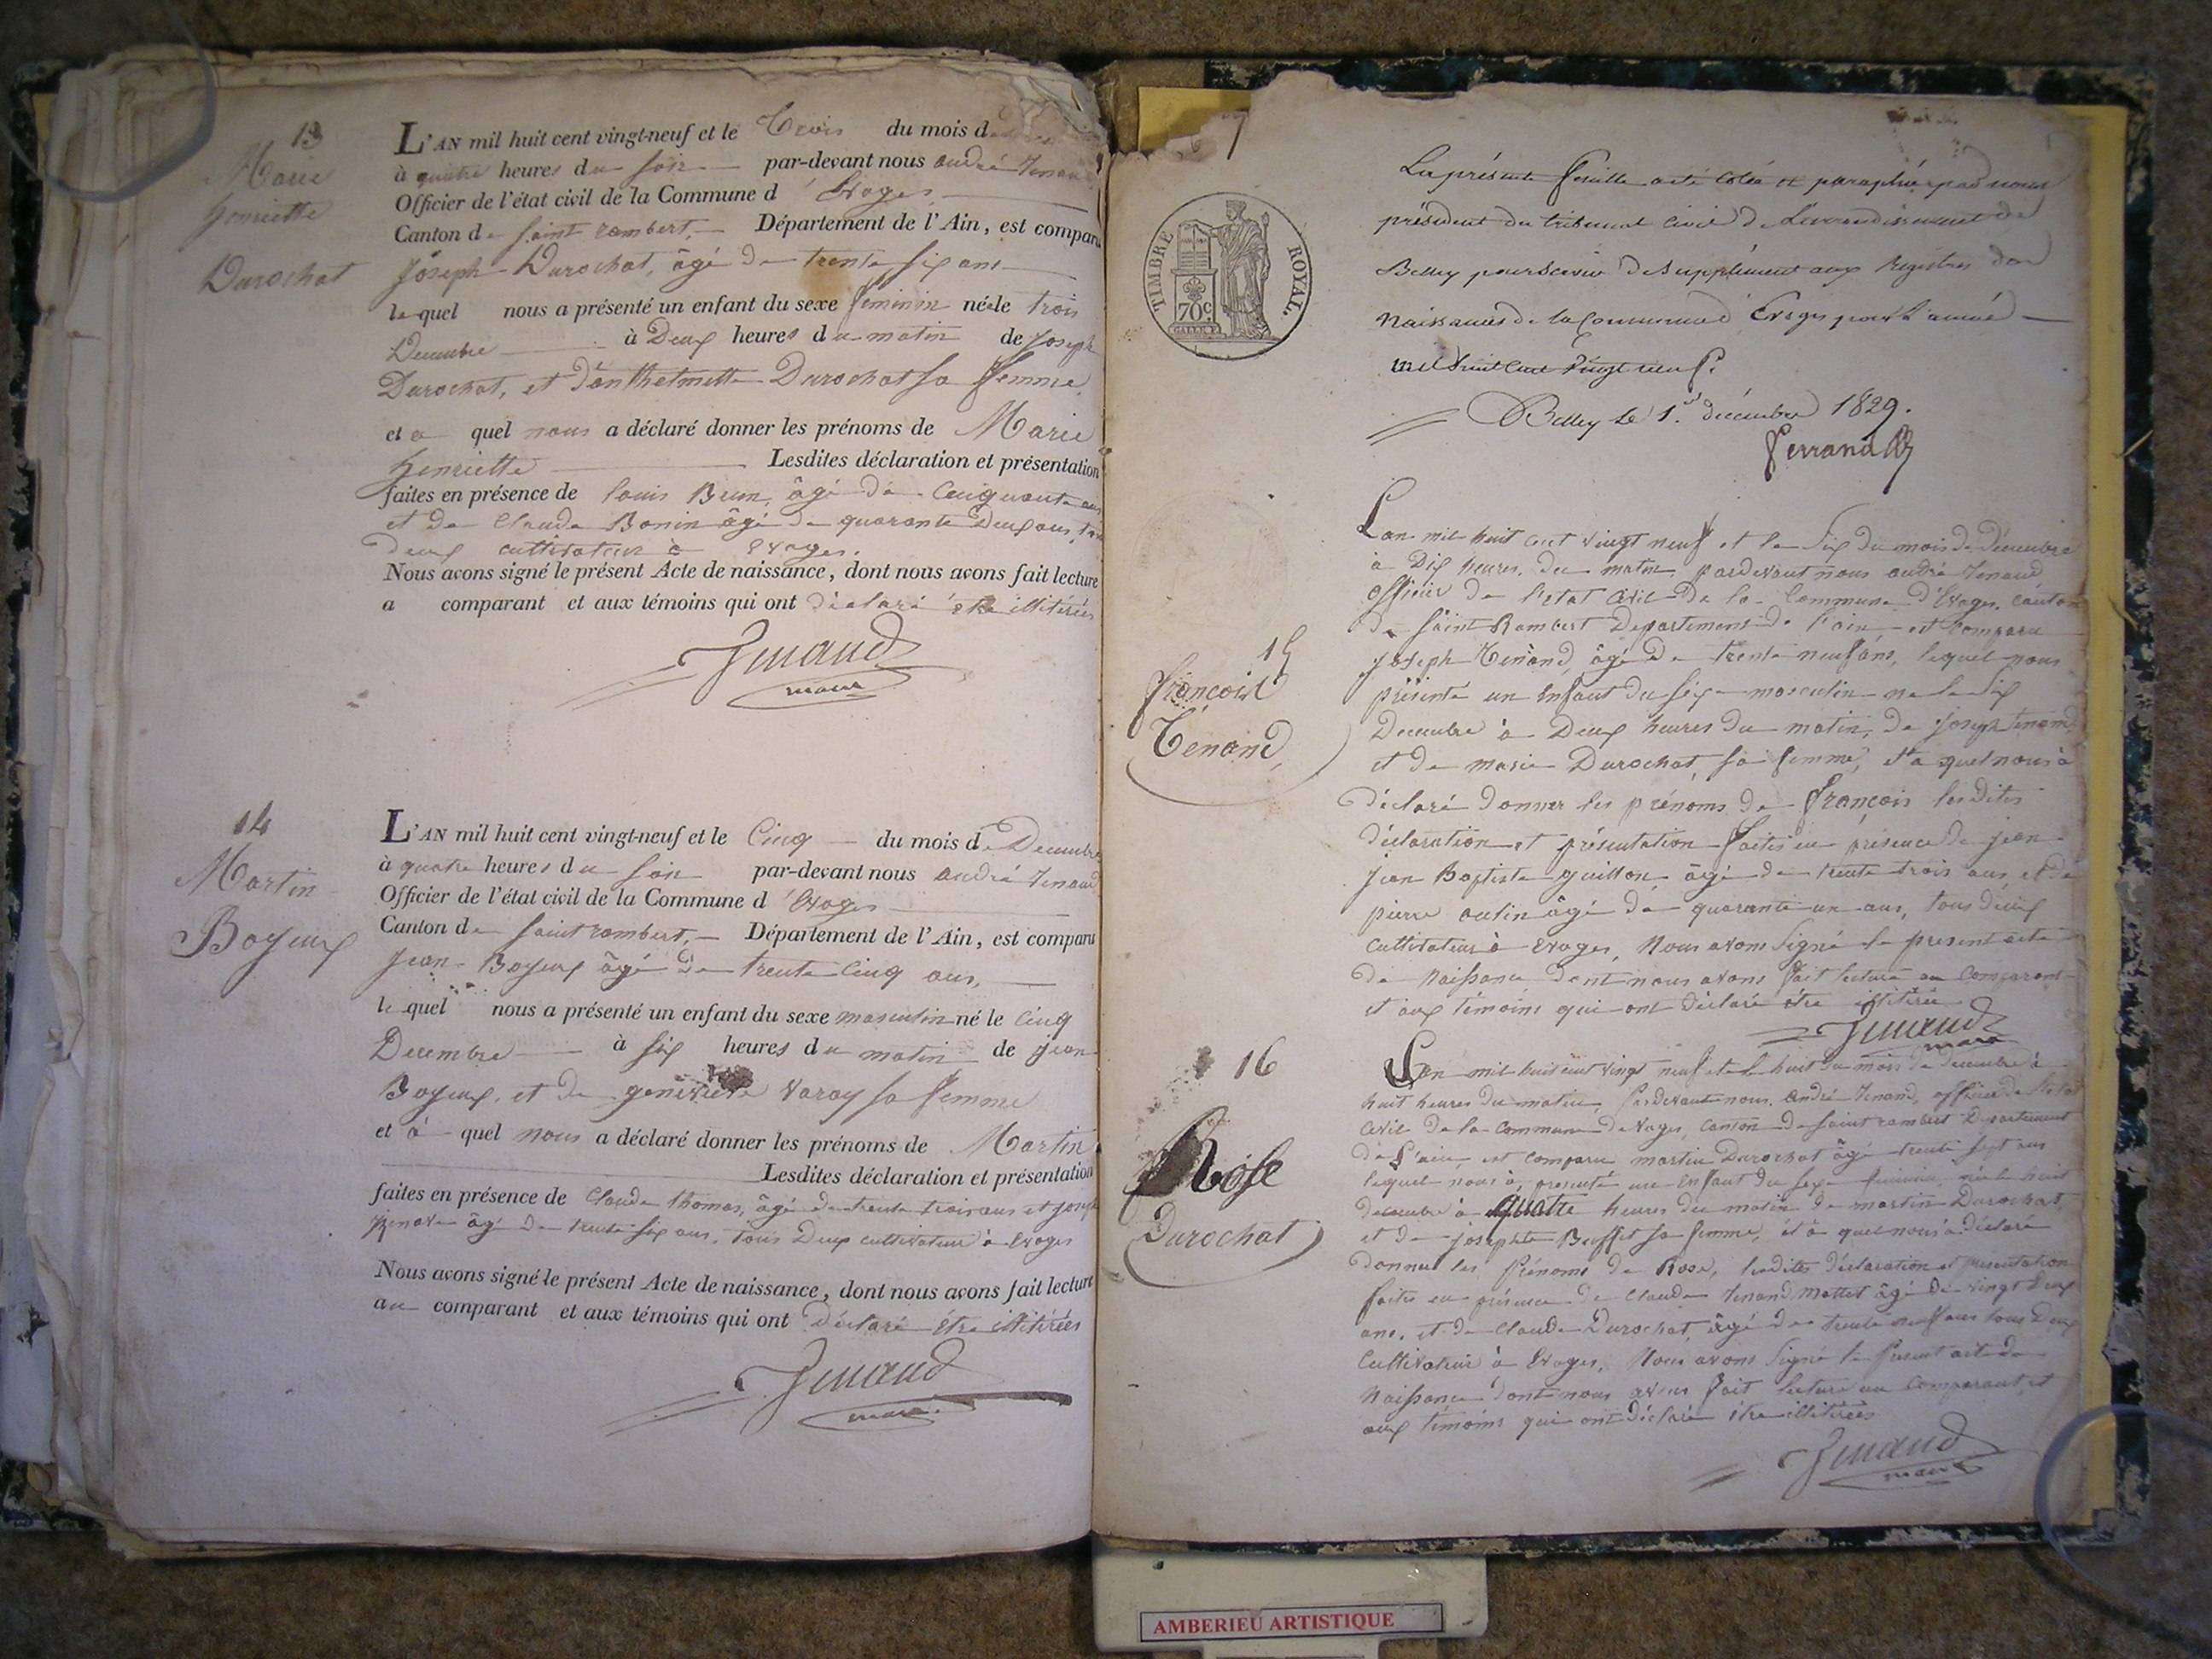 13
Marie
henriette
Durochat
L'AN mil huit cent vingt-neuf et le Trois du mois d
à quatre heures du soir par-devant nous andré Tenand
Officier de l'état civil de la Commune d'Evoges
Canton de saint rambert, Département de l'Ain, est comparu
Joseph Durochat, âgé de trente six ans
le quel nous a présenté un enfant du sexe feminin né le trois
Decembre à Deux heures du matin de Joseph
Durochat, et d'anthelmette Durochat sa femme
et a quel nous a déclaré donner les prénoms de Marie
henriette Lesdites déclaration et présentation
faites en présence de louis Brun, âgé de Cinquante ans
et de Claude Bonin âgé de quarante Deux ans, tous
deux cultivateur à Evoges.
Nous avons signé le présent Acte de naissance, dont nous avons fait lecture
a comparant et aux témoins qui ont déclaré être illitérés
Tenand
maire
14
Martin
Boyeux
L'AN mil huit cent vingt-neuf et le Cinq du mois de Decembre
à quatre heures du soir par-devant nous andré Tenand
Officier de l'état civil de la Commune d'Evoges
Canton de saint rambert, Département de l'Ain, est comparu
Jean Boyeux âgé de trente Cinq ans,
le quel nous a présenté un enfant du sexe masculin né le Cinq
Decembre à six heures du matin de jean
Boyeux, et de genevieve Varay sa femme
et à quel nous a déclaré donner les prénoms de Martin
Lesdites déclaration et présentation
faites en présence de Claude thomas, âgé de trente trois ans et joseph
âgé de trente six ans, tous Deux cultivateur à Evoges
Nous avons signé le présent Acte de naissance, dont nous avons fait lecture
au comparant et aux témoins qui ont déclaré être illitérées
Tenand
maire
7
TIMBRE ROYAL
70c
La présente feuille a été cotée et paraphée par nous
président du tribunal Civil de L'arrondissement de
Belley pour servir de supplément aux registres de
Naissances de la Commune d'Evoges pour l'année
mil huit cent vingt neuf.
Belley le 1.er décembre 1829.
Ferrand
15
françois
Tenand
L'an mil huit cent vingt neuf et le six du mois de Décembre
à Dix heures du matin, pardevant nous andré Tenand
officier de l'état Civil de la Commune d'Evoges, canton
de saint Rambert Departement de l'ain est comparu
Joseph Tenand, âgé de trente neuf ans, lequel nous
présenté un enfant du sexe masculin né le six
Decembre à Deux heures du matin, de joseph tenand
et de marie Durochat, sa femme, et a quel nous à
déclaré donner les prénoms de françois lesdites
déclaration et présentation faites en présence de jean
jean Baptiste guillon âgé de trente trois ans et de
pierre outin âgé de quarante un ans, tous deux
Cultivateur à Evoges, Nous avons signé le present acte
de Naissance dont nous avons fait lecture au Comparant
et aux témoins qui ont déclaré être illitérés
Tenand
maire
16
Rose
Durochat
L'an mil huit cent vingt neuf et le huit du mois de decembre à
huit heures du matin, pardevant nous, andré Tenand, officier de l'état
Civil de la Commune d'Evoges, Canton de saint rambert Departement
de l'ain, est comparu martin Durochat âgé trente sept ans
lequel nous à présenté un enfant du sexe feminin née le huit
decembre à quatre heures du matin de martin Durochat
et de josephte Buffet sa femme, et à quel nous à déclaré
donner les Prénoms de Rose, lesdites déclaration et presentation
faites en présence de Claude tenand mottet âgé de vingt Deux
ans, et de Claude Durochat âgé de trente neuf ans tous Deux
Cultivateur à Evoges, Nous avons signé le présent acte de
Naissance dont nous avons fait lecture au Comparant et
aux témoins qui ont déclaré être illitérées
Tenand
maire
AMBERIEU ARTISTIQUE